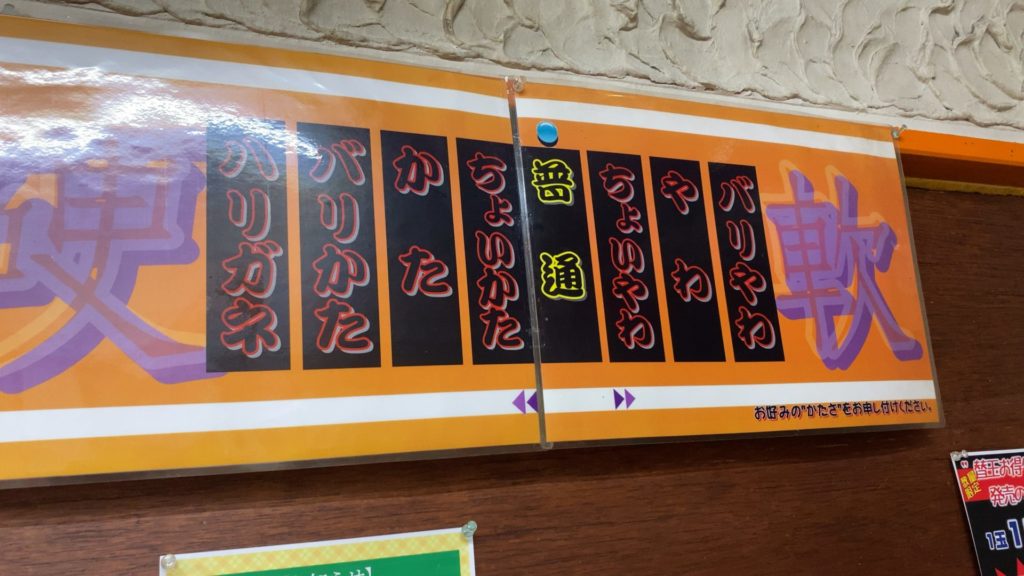 軟
バリやわ
やわ
ちょいやわ
普通
ちょいかた
かた
バリかた
ハリガネ
硬
お好みの"かたさ"をお申し付けください。
替玉お得
発売の
1玉1